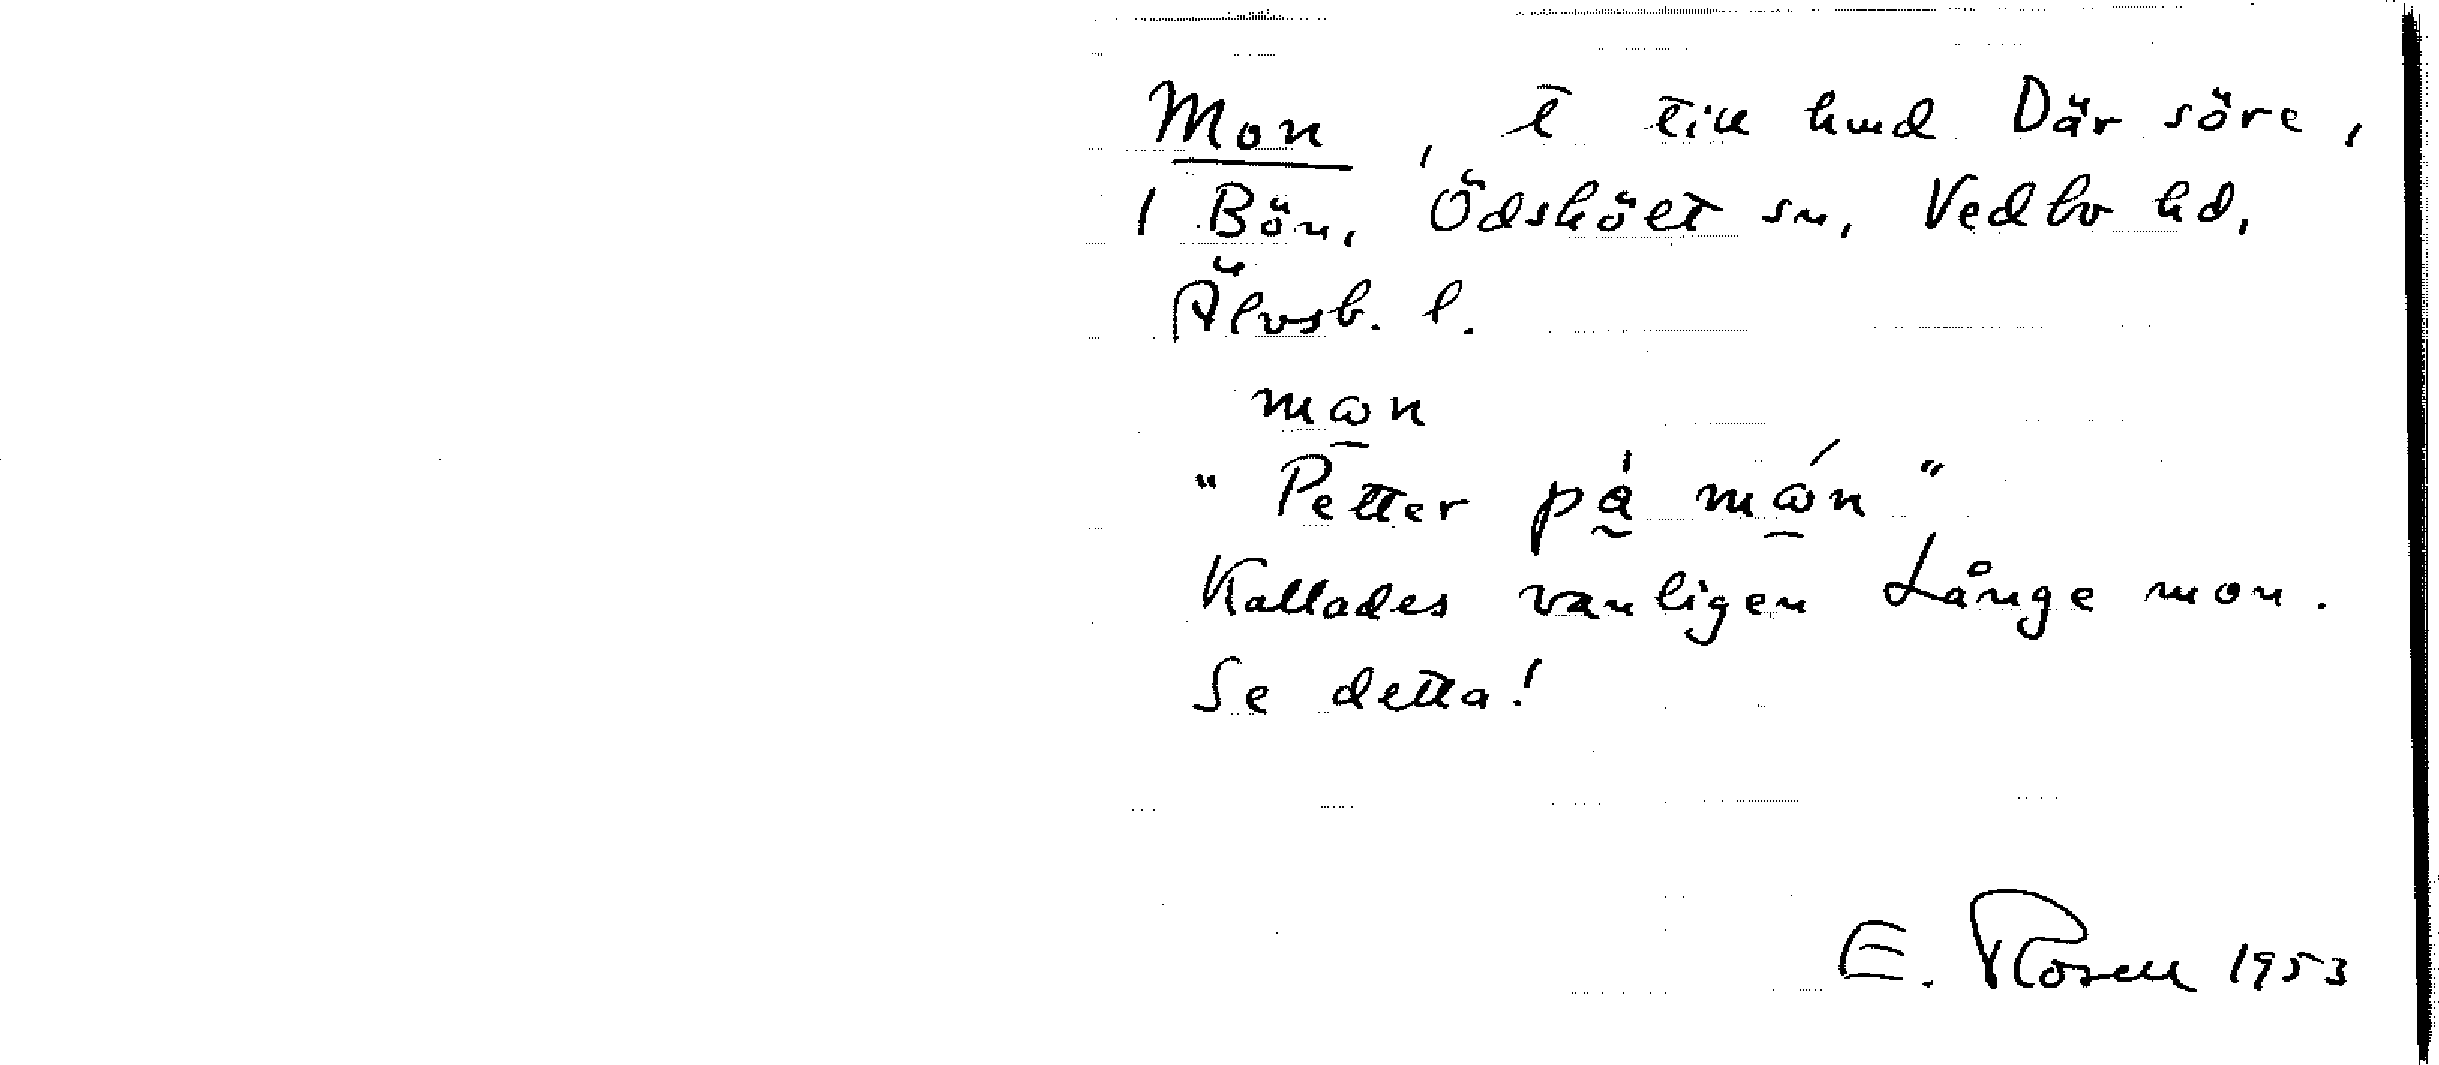 Mon, t till hmd Där söre,
1 Bön, Ödskölt sn, Vedbo hd,
Älvsb. l.
mɷn
"Petter på mɷ́n"
Kallades vanligen Långe mon.
Se detta!
E. Rosell 1953